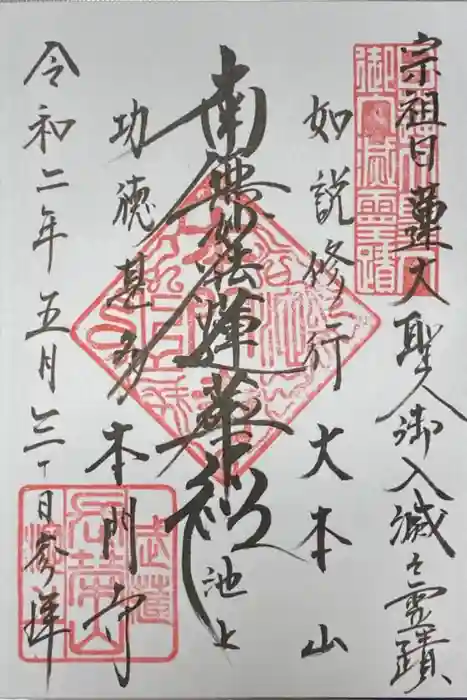 宗祖日蓮大聖人御入滅之霊蹟
御入滅靈蹟
如説修行 大本山
南無妙法蓮華経
池上
功徳甚多 本門寺
令和二年五月三十日参拝
武蔵
長榮山